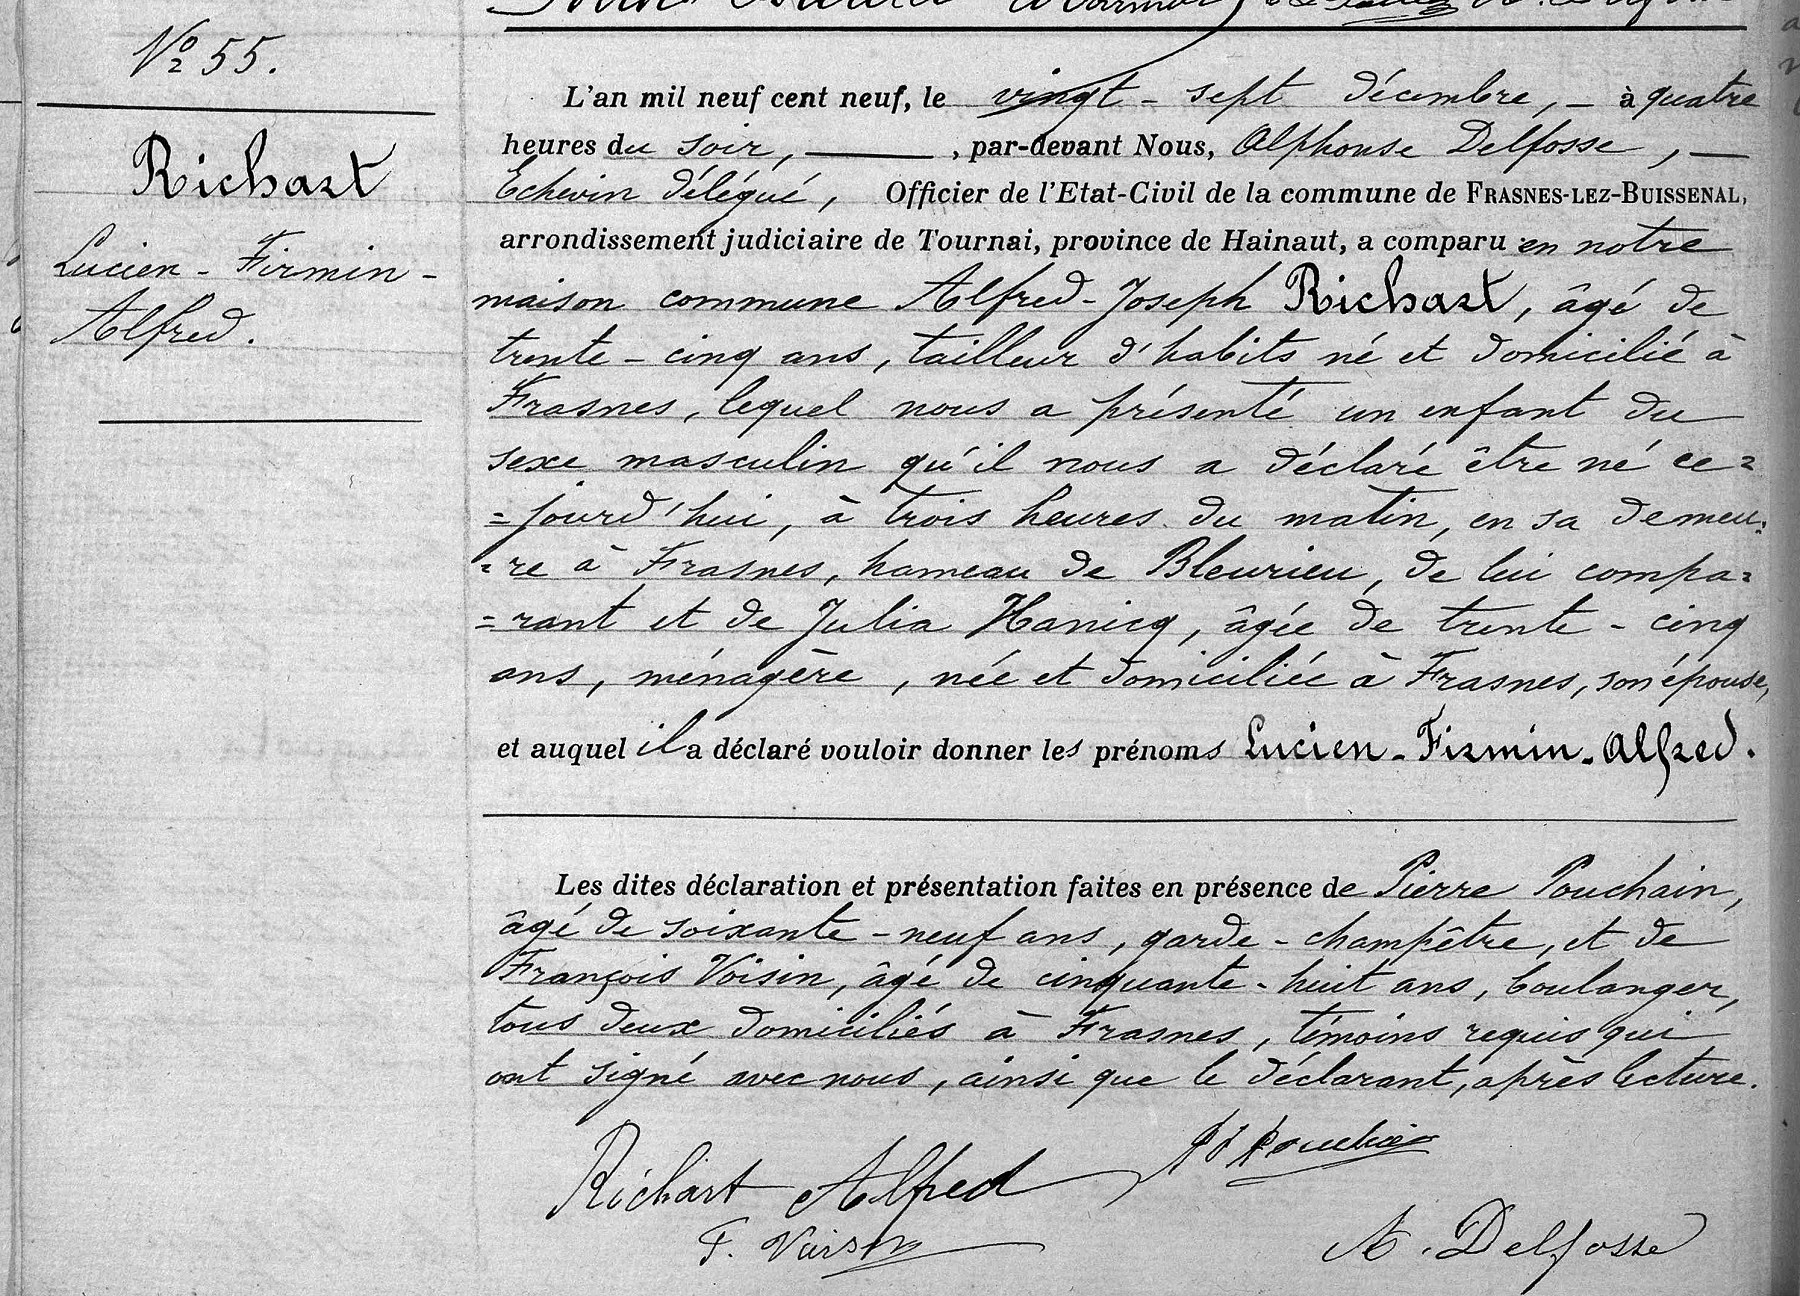 Nº 55.
Richart
Lucien - Firmin -
Alfred.
L'an mil neuf cent neuf, le vingt - sept décembre, - à quatre
heures du soir, , par-devant Nous, Alphonse Delfosse, -
Echevin délégué, Officier de l'Etat-Civil de la commune de FRASNES-LEZ-BUISSENAL,
arrondissement judiciaire de Tournai, province de Hainaut, a comparu en notre
maison commune Alfred-Joseph Richart, âgé de
trente - cinq ans, tailleur d'habits né et domicilié à
Frasnes, lequel nous a présenté un enfant du
sexe masculin qu'il nous a déclaré être né ce=
=jourd'hui, à trois heures du matin, en sa demeu=
=re à Frasnes, hameau de Bleurieu, de lui compa=
=rant et de Julia Hanicq, âgée de trente - cinq
ans, ménagère, née et domiciliée à Frasnes, son épouse,
et auquel il a déclaré vouloir donner les prénoms Lucien - Firmin - Alfred.
Les dites déclaration et présentation faites en présence de Pierre Pouchain,
âgé de soixante - neuf ans, garde - champêtre, et de
François Voisin, âgé de cinquante - huit ans, boulanger,
tous deux domiciliés à Frasnes, témoins requis qui
ont signé avec nous, ainsi que le déclarant, après lecture.
Richart Alfred Pouchain
F. Voisin A. Delfosse